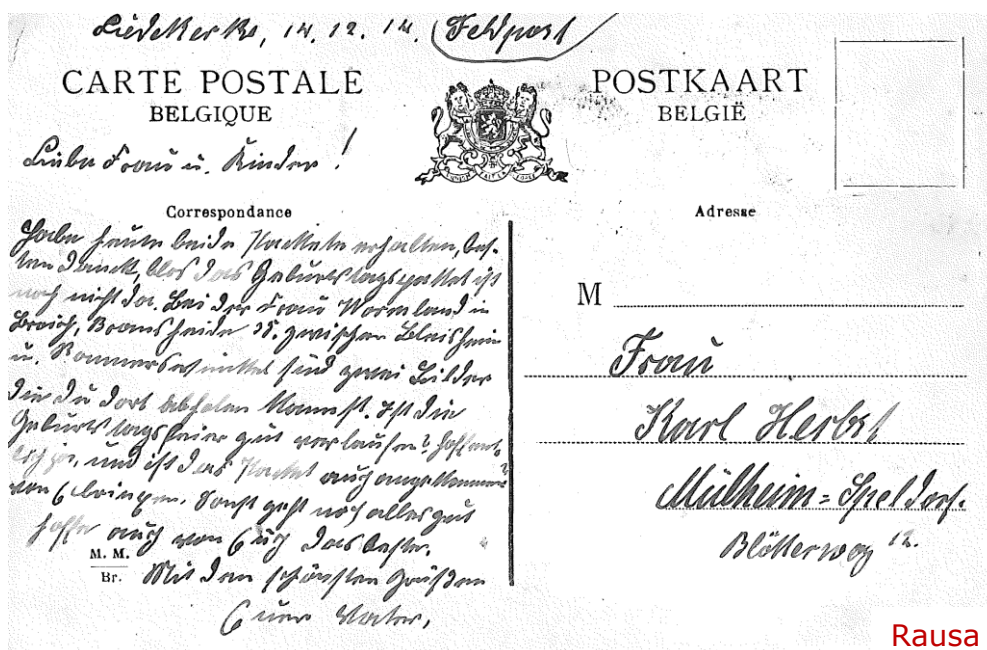 Liedekerke, 14.12.14. Feldpost
CARTE POSTALE
BELGIQUE
POSTKAART
BELGIË
Liebe Frau u. Kinder!
Correspondance
Habe heute beide Packete erhalten, bes-
ten Danck, blos das Geburtstagspacket ist
noch nicht da. Bei der Frau Wormland in
Broich, zwischen
u. sind zwei Bilder
die du dort abholen kannst. Ist die
Geburtstagsfeier gut verlaufen? Hoffent-
lich ja, und ist das Packet auch angekommen?
von Sonst geht noch alles gut
hoffe auch von Euch das beste.
Mit den schönsten Grüßen
Euer Vater.
M. M.
Br.
Adresse
M
Frau
Karl Herbst
Mülheim=Speldorf.
Blötterweg 12.
Rausa